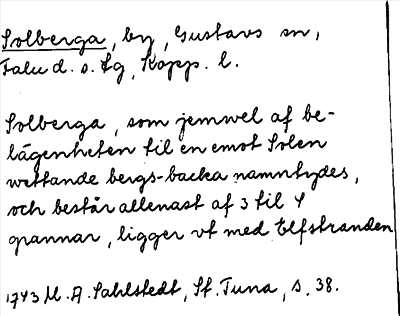 Solberga, by, Gustavs sn,
Falu d. s. fg, Kopp. l.
Solberga, som jemwel af be-
lägenheten til en emot Solen
wettande bergs-backa namntydes,
och består allenast af 3 til 4
grannar, ligger vt med Elfstranden
1743 M. A. Sahlstedt, St. Tuna, s. 38.